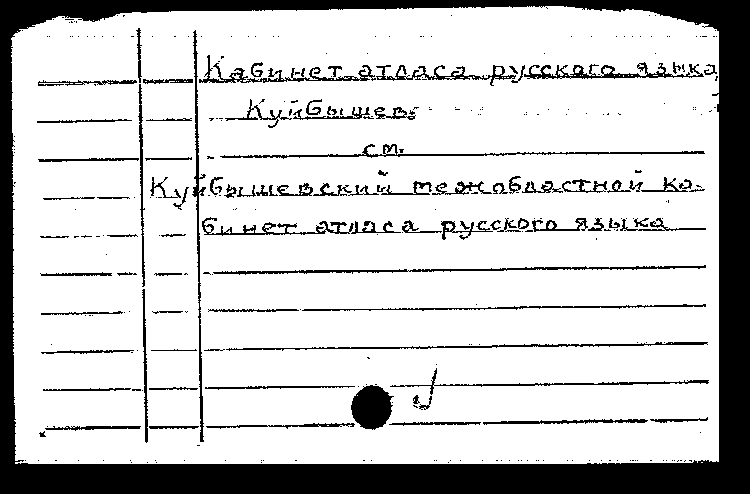 Кабинет атласа русского языка,
Куйбышев.
см.
Куйбышевский межобластной ка-
бинет атласа русского языка